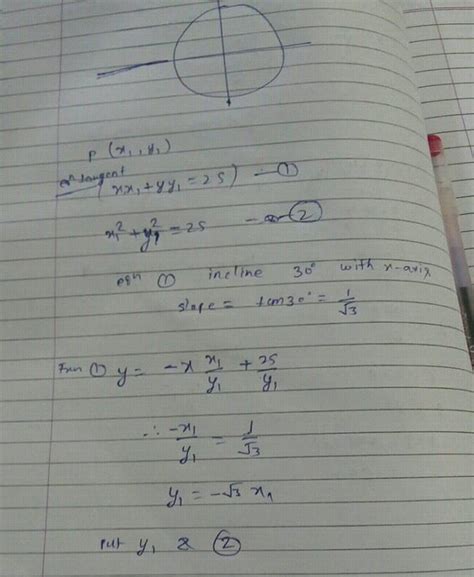 P (x₁, y₁)
eqⁿ tangent (xx₁ + yy₁ = 25) — ①
x₁² + y₁² = 25 — ②
eqⁿ ① incline 30° with x-axis
slope = tan30° = 1/√3
From ① y = -x x₁/y₁ + 25/y₁
∴ -x₁/y₁ = 1/√3
y₁ = -√3 x₁
Put y₁ & ②